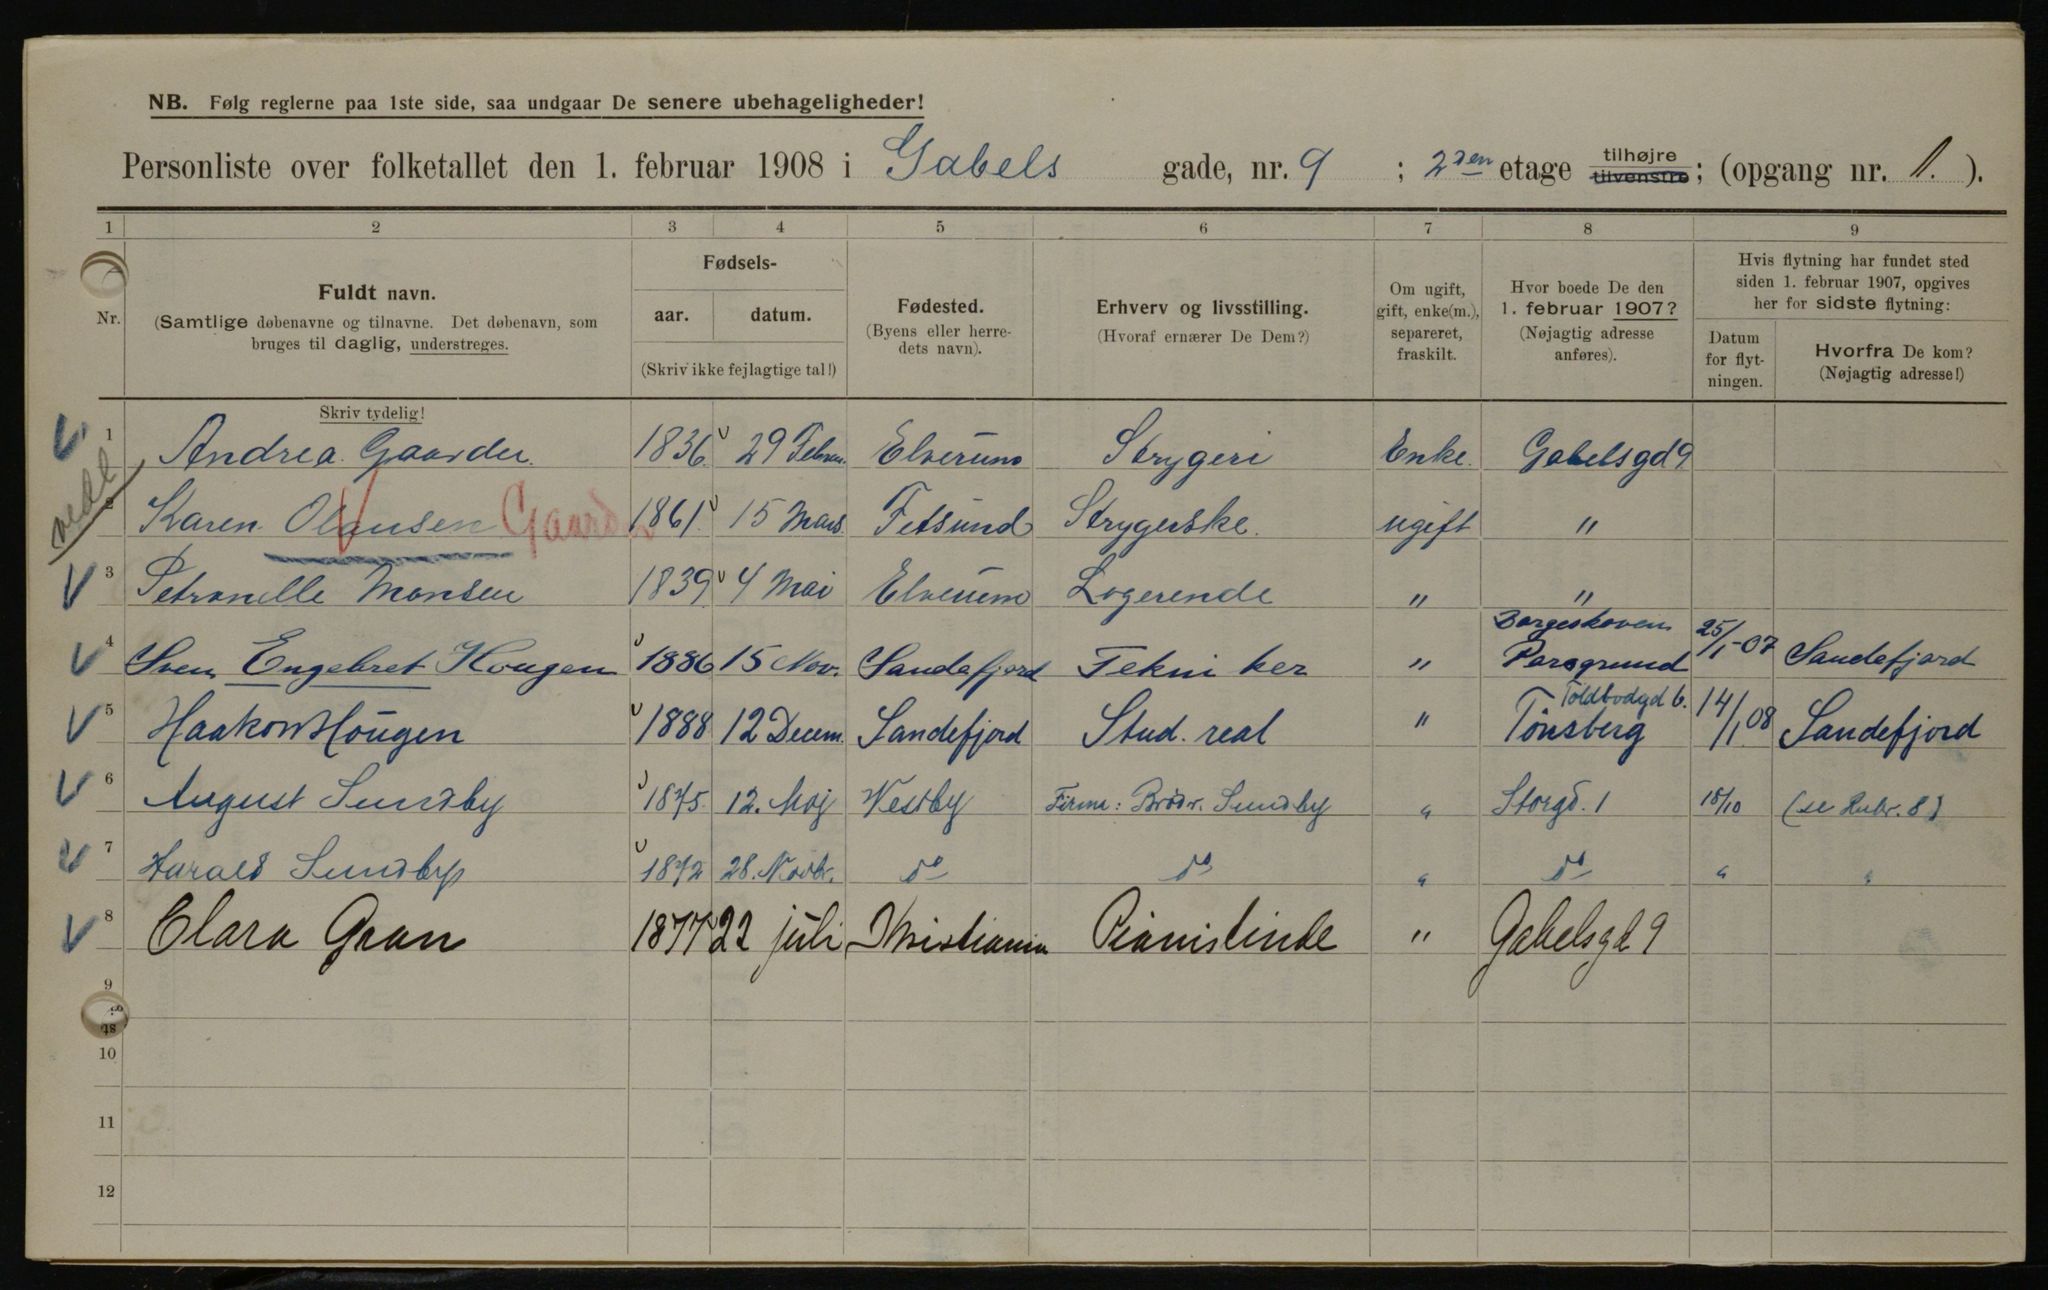 NB. Følg reglerne paa 1ste side, saa undgaar De senere ubehageligheder!
Personliste over folketallet den 1. februar 1908 i Gabels gade, nr. 9 ; 2den etage tilhøjre tilvenstre; (opgang nr. 1. ).
1 2 3 4 5 6 7 8 9
Nr.
Fuldt navn.
(Samtlige døbenavne og tilnavne. Det døbenavn, som
bruges til daglig, understreges.
Skriv tydelig!
Fødsels-
aar. datum.
(Skriv ikke fejlagtige tal!)
Fødested.
(Byens eller herre-
dets navn).
Erhverv og livsstilling.
(Hvoraf ernærer De Dem?)
Om ugift,
gift, enke(m.),
separeret,
fraskilt.
Hvor boede De den
1. februar 1907?
(Nøjagtig adresse
anføres).
Hvis flytning har fundet sted
siden 1. februar 1907, opgives
her for sidste flytning:
Datum
for flyt-
ningen.
Hvorfra De kom?
(Nøjagtig adresse!)
1 Andrea Gaarder. 1836 29 Febru. Elverum Strygeri Enke. Gabelsgd 9
2 Karen Olausen Gaarder 1861 15 Mars. Fetsund Strygerske. ugift "
3 Petronelle Monsen 1839 4 Mai Elverum Logerende " "
4 Sven Engebret Hougen 1886 15 Nov. Sandefjord Tekniker " Borgeskoven Porsgrund 25/1-07 Sandefjord
5 Haakon Hougen 1888 12 Decem. Sandefjord Stud. real " Toldbodgd 6. Tönsberg 14/1 08 Sandefjord
6 August Sundby 1875. 12. Maj Vestby Firma: Brödr. Sundby " Storgd. 1 18/10 (se Rubr. 8)
7 Harald Sundby 1872 28. Novbr. do do " do " "
8 Clara Graan 1877 22 juli Kristiania Pianistinde " Gabelsgd 9
9
10
11
12